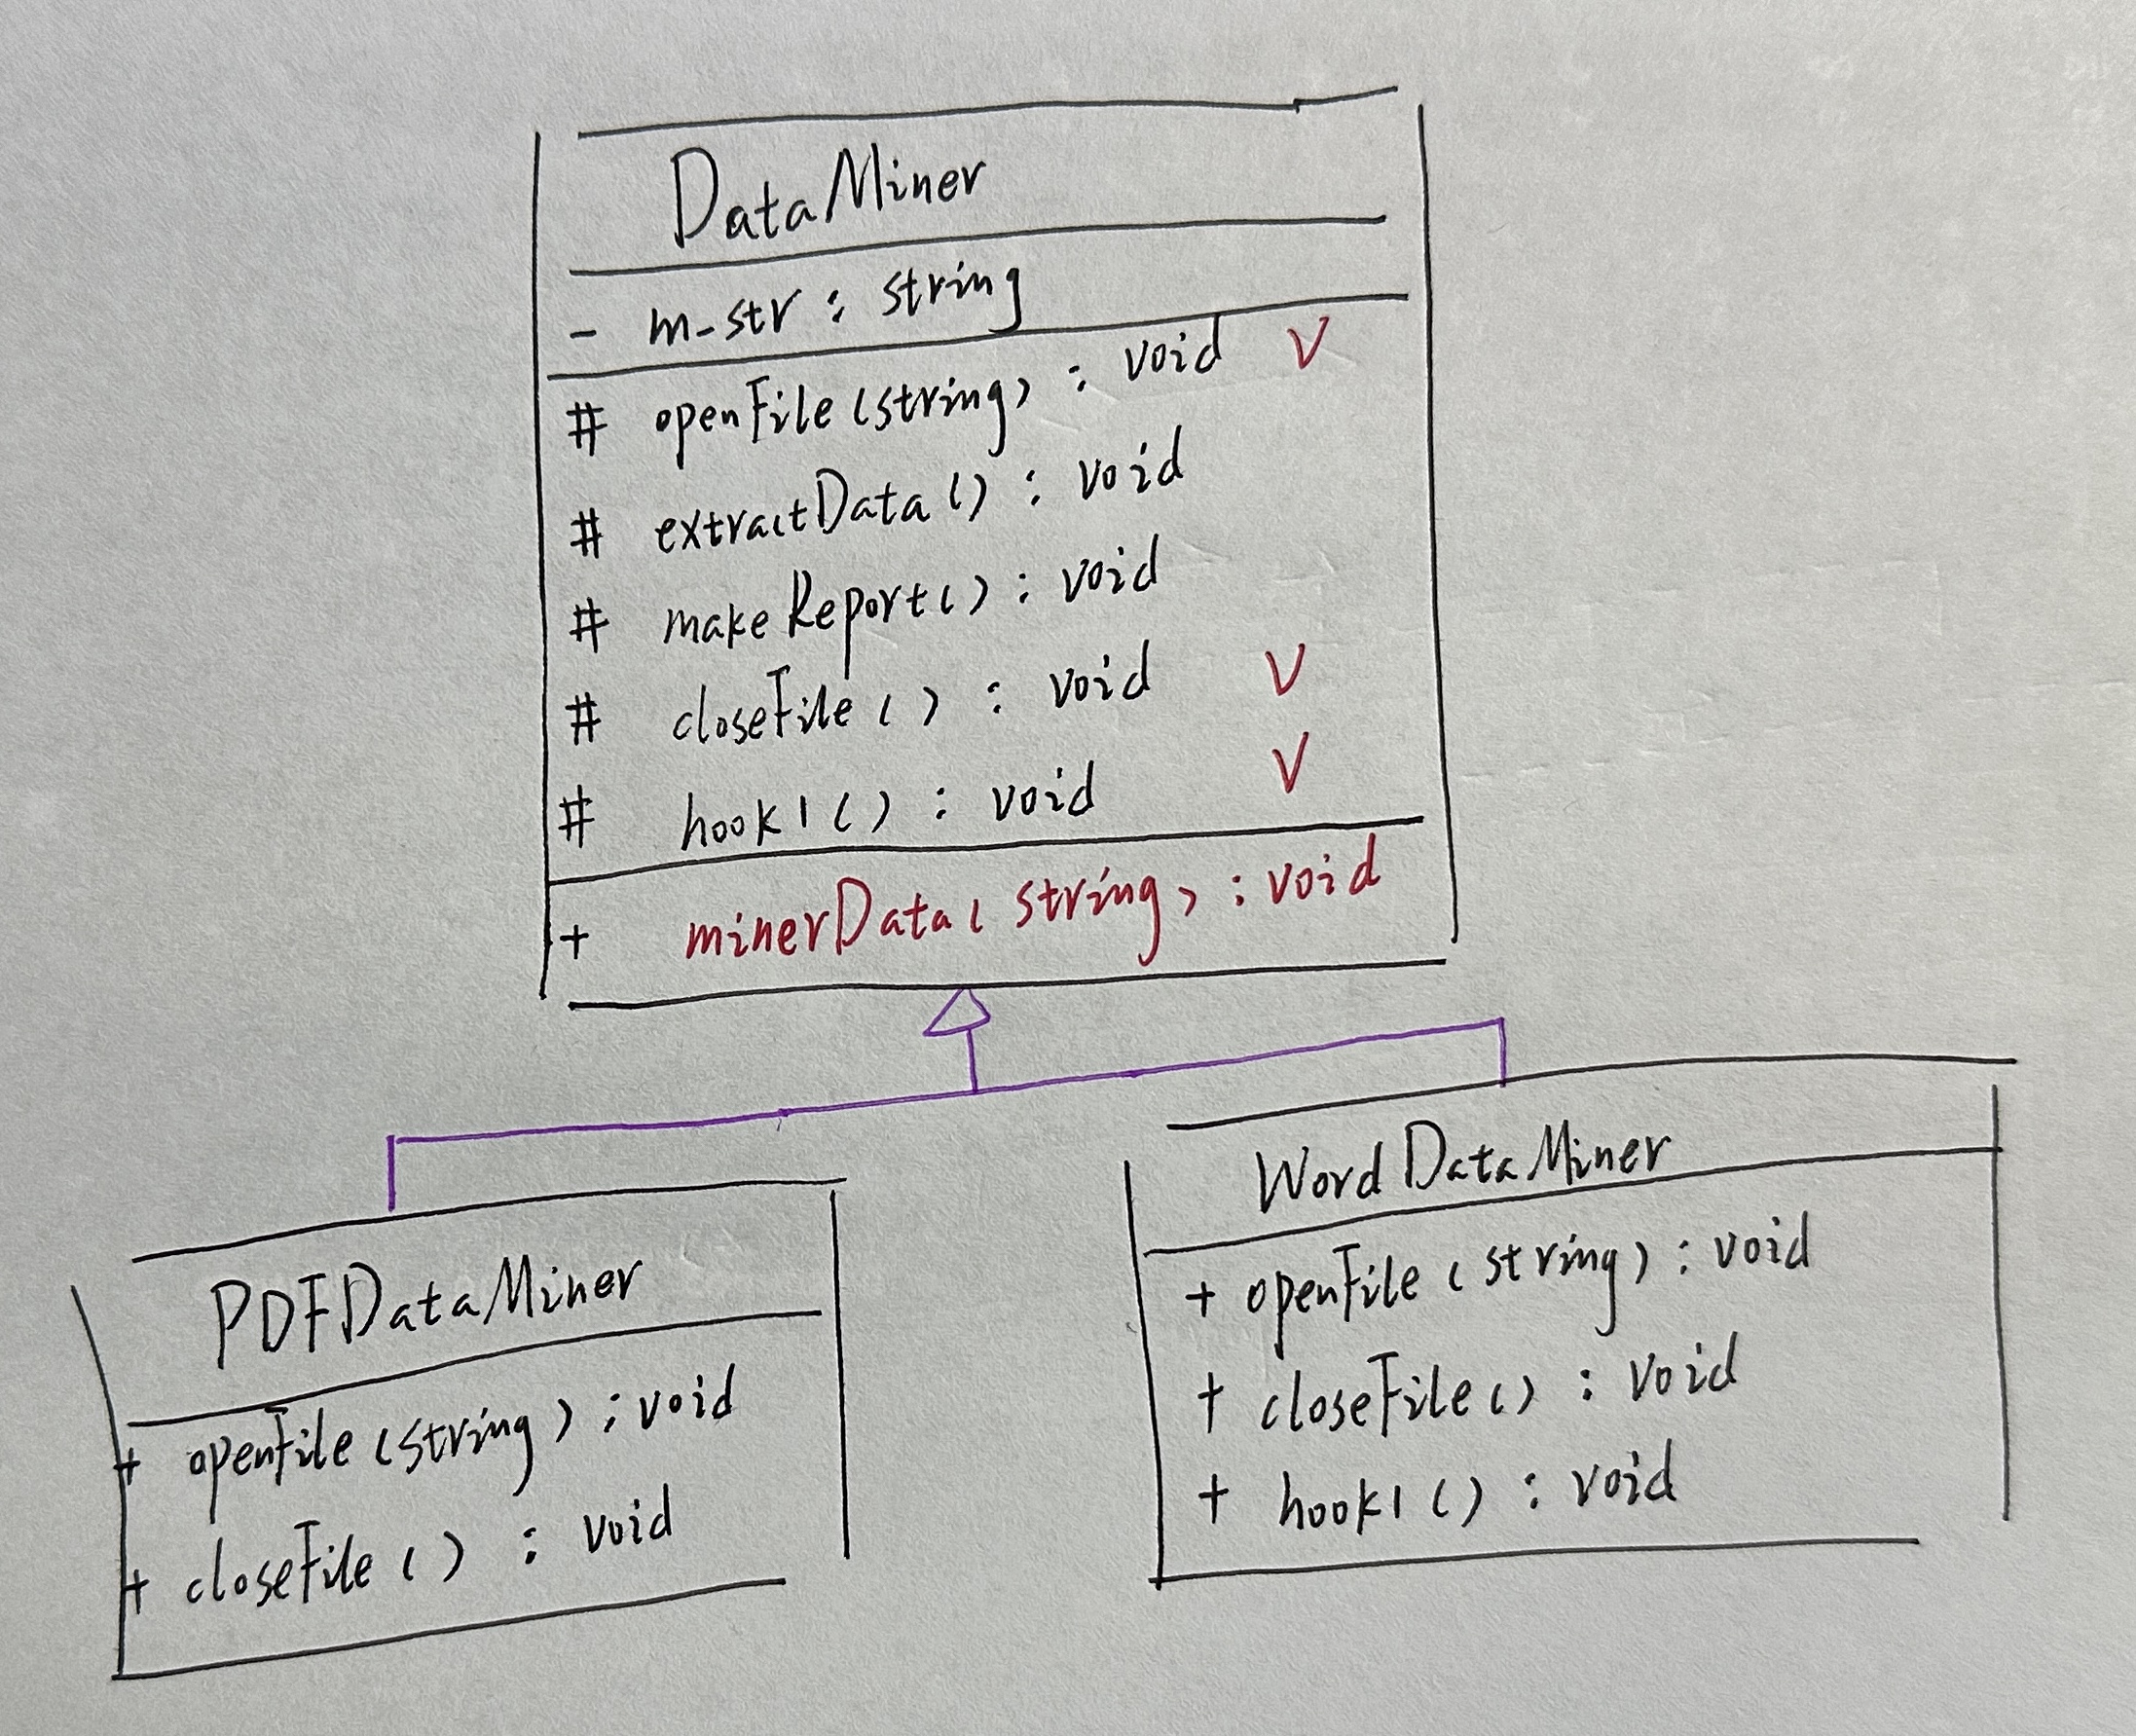 DataMiner
- m_str : string
# openFile(string) : void V
# extractData() : void
# makeReport() : void
# closeFile() : void V
# hook1() : void V
+ minerData(string) : void
PDFDataMiner
+ openFile(string) : void
+ closeFile() : void
WordDataMiner
+ openFile(string) : void
+ closeFile() : void
+ hook1() : void